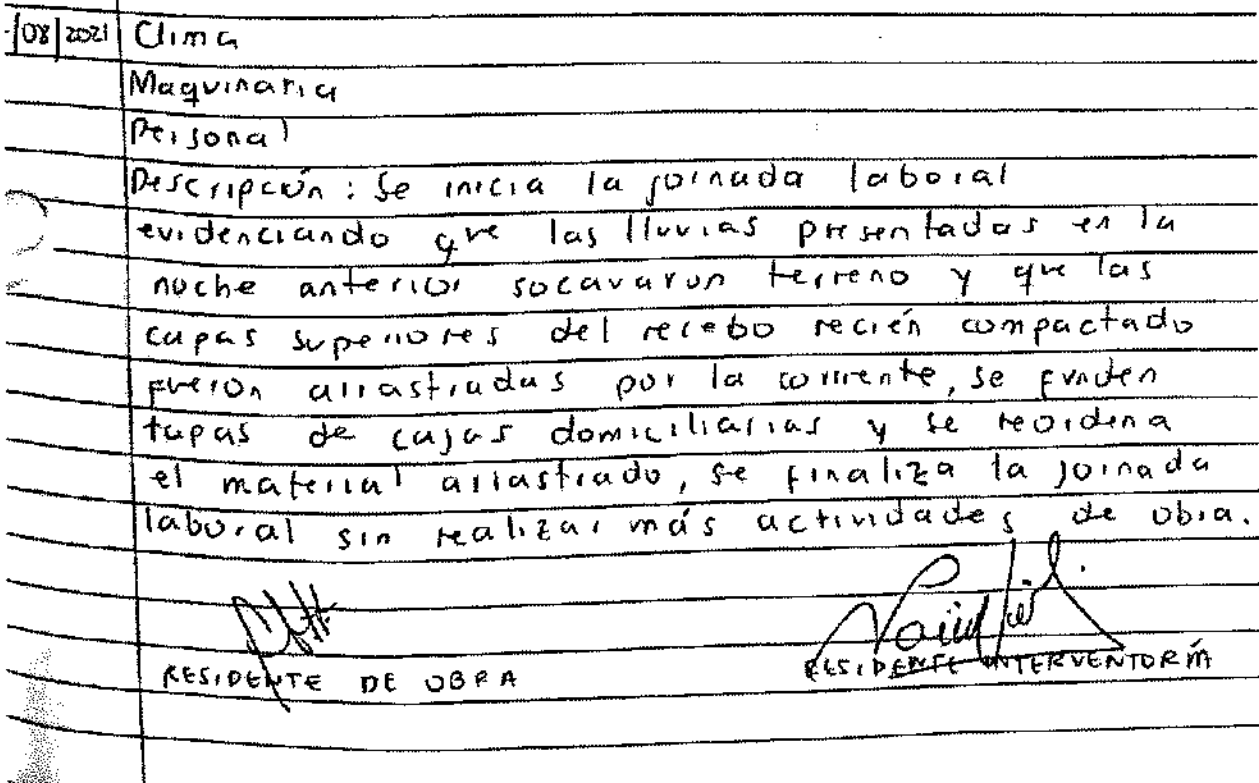 08 2021 Clima
Maquinaria
Personal
Descripción: Se inicia la jornada laboral
evidenciando que las lluvias presentadas en la
noche anterior socavaron terreno y que las
capas superiores del recebo recién compactado
fueron arrastradas por la corriente, se funden
tapas de cajas domiciliarias y se reordena
el material arrastrado, se finaliza la jornada
laboral sin realizar más actividades de obra.
RESIDENTE DE OBRA RESIDENTE INTERVENTORÍA